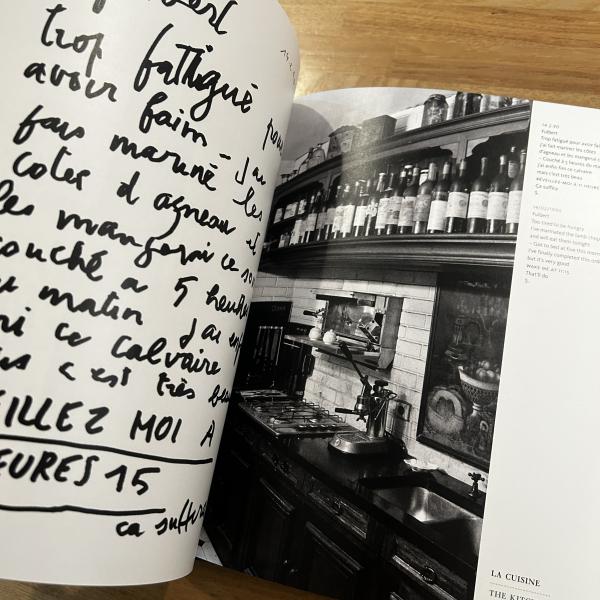 trop fattigué pour
avoir faim – j'ai
fais mariné les
cotes d agneau et
les mangerai ce
couché a 5 heures
matin j'ai
ni ce calvaire
c'est très
EILLEZ MOI A
EURES 15
ca suffira
Fulbert
Trop fatigué pour avoir fai
J'ai fait mariner les côtes
d'agneau et les mangerai
– Couché à 5 heures du
J'ai enfin fini ce calvaire
mais c'est très beau
RÉVEILLEZ-MOI À 11 HEURES
Ça suffira
S.
Fulbert
Too tired to be hungry
I've marinated the lamb chop
and will eat them tonight
– Got to bed at five this morn
I've finally completed this ord
but it's very good
WAKE ME AT 11:15
That'll do
S.
LA CUISINE
THE KITCH